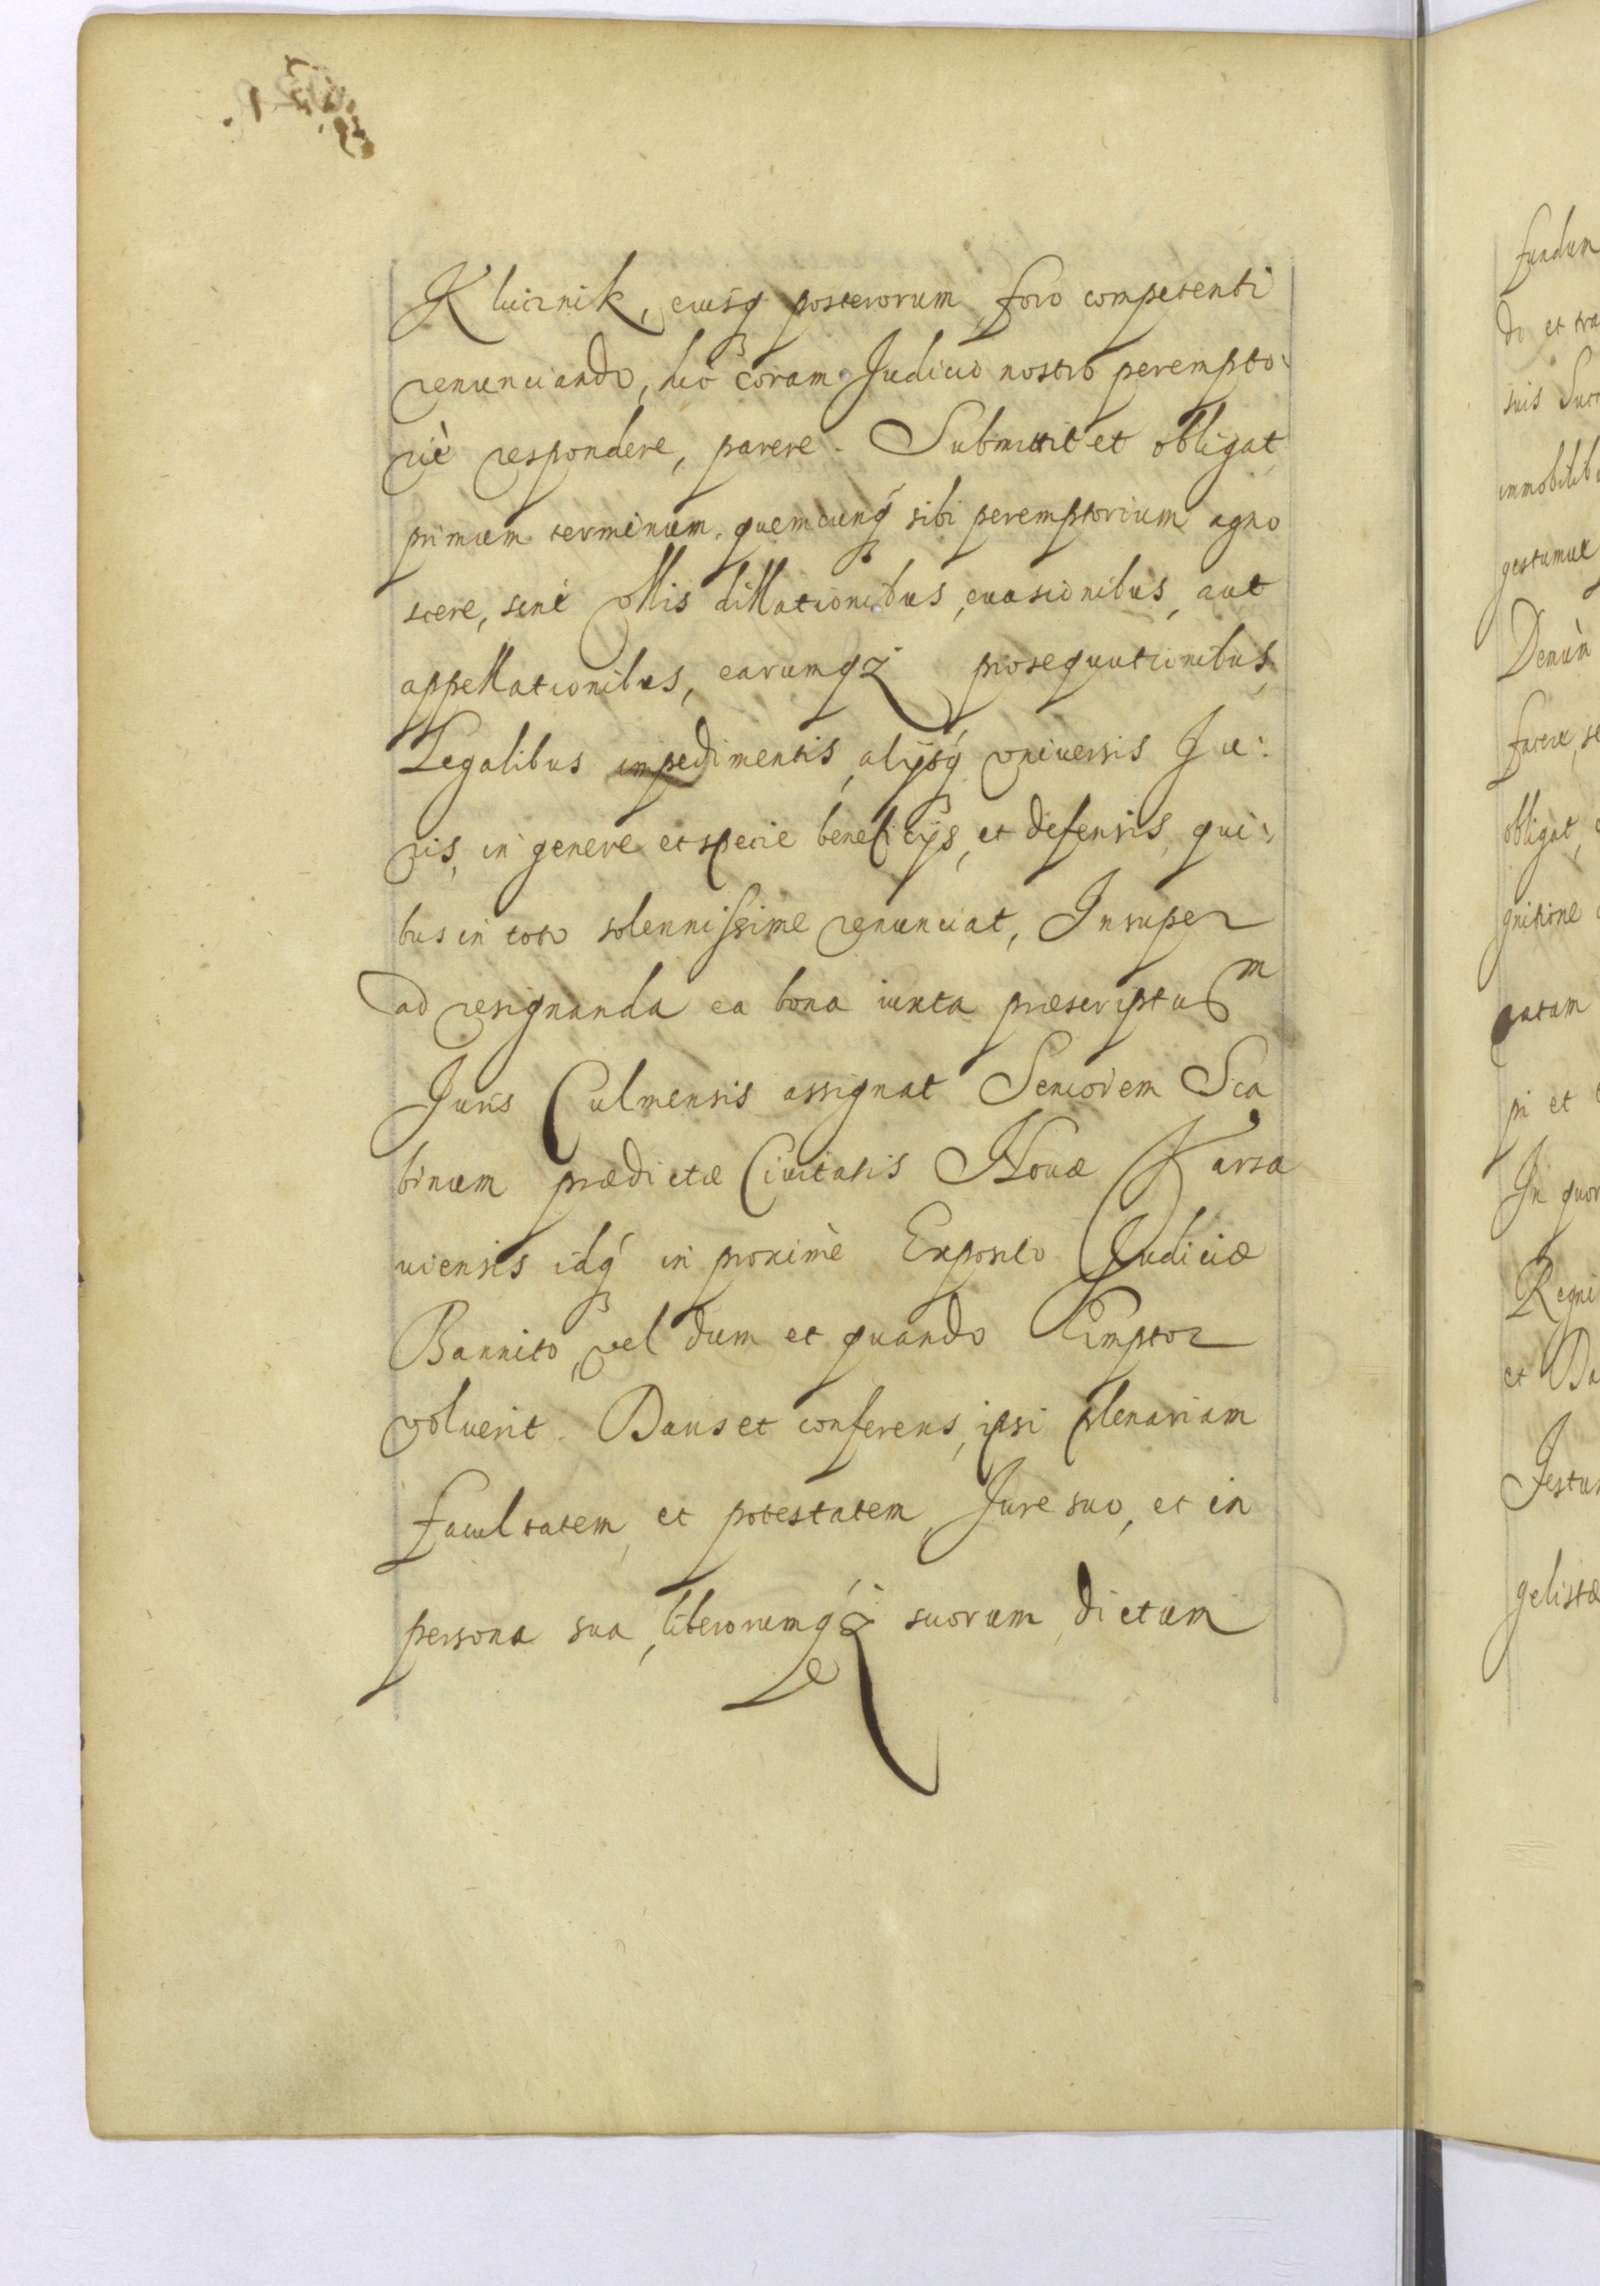 Kluiznik, eiusq3 posterorum foro competenti
renunciando, hic coram Judicio nostro perempto:
riè respondere, parere. Submittit et obligat
primum terminum. quemcunq3 sibi peremptorium agno
scere, sine ollis dillationibus, evasionibus, aut
appellationibus, earumqz prosequutionibus,
Legalibus impedimentis, alijsq3 vniuersis Ju:
ris, in genere et specie beneficijs, et defensis, qui:
bus in toto solennissime renunciat, Insuper
ad resignanda ea bona iuxta præscriptum
Juris Culmensis assignat Seniorem Sca
binum prædictæ Ciuitatis Nouæ Varsa
uiensis idq3 in proximè Exposito Judicio
Bannito, vel dum et quando Emptor
voluerit. Dans et conferens, ipsi plenariam
facultatem, et potestatem Jure suo, et in
persona sua, liberorumqz suorum, dictum
fundum
di et tra
suis Suc
immobilib
Demùm
facere, se
obligat,
gnitione
pi et
In quor
Regni
et Da
Festu
gelistæ